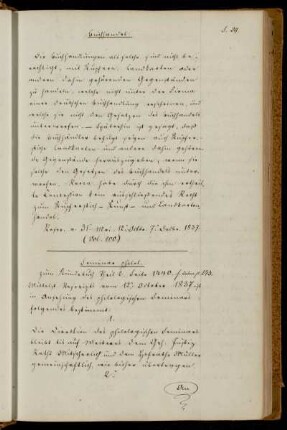 S. 34
Buchhandel.
Die Buchhandlungen als solche sind nicht be-
rechtigt, mit Büchern, Landkarten oder
andern dahin gehörenden Gegenständen
zu handeln, welche nicht unter der Firma
einer deutschen Buchhandlung erschienen, und
welche sie nicht den Gesetzen des Buchhandels
unterwerfen. — ist gesagt, daß
die Buchhändler befugt seyen auf Bücher,
Landkarten und andere dahin gehören-
de Gegenstände herauszugeben, wenn sie
solche den Gesetzen des Buchhandels unter-
werfen. habe durch die ihm ertheil-
te Concession kein ausschließendes Recht
zum Kunst- und Landkarten-
handel.
Reser. v. 31. Mai. 12. Octbr. 7. Decbr. 1837.
Seminar. philol.
zum Kundebuch Theil 6. Seite 1440.
Mittelst Rescripts vom 12. October 1837. ist
in Ansehung des philologischen Seminars
folgendes bestimmt.
1.
Die Direction des philologischen Seminars
bleibt bis auf Weiteres dem Geh. Justiz-
Rathe Mitscherlich und dem Hofrathe Müller
gemeinschaftlich, wie bisher übertragen.
2.
Die